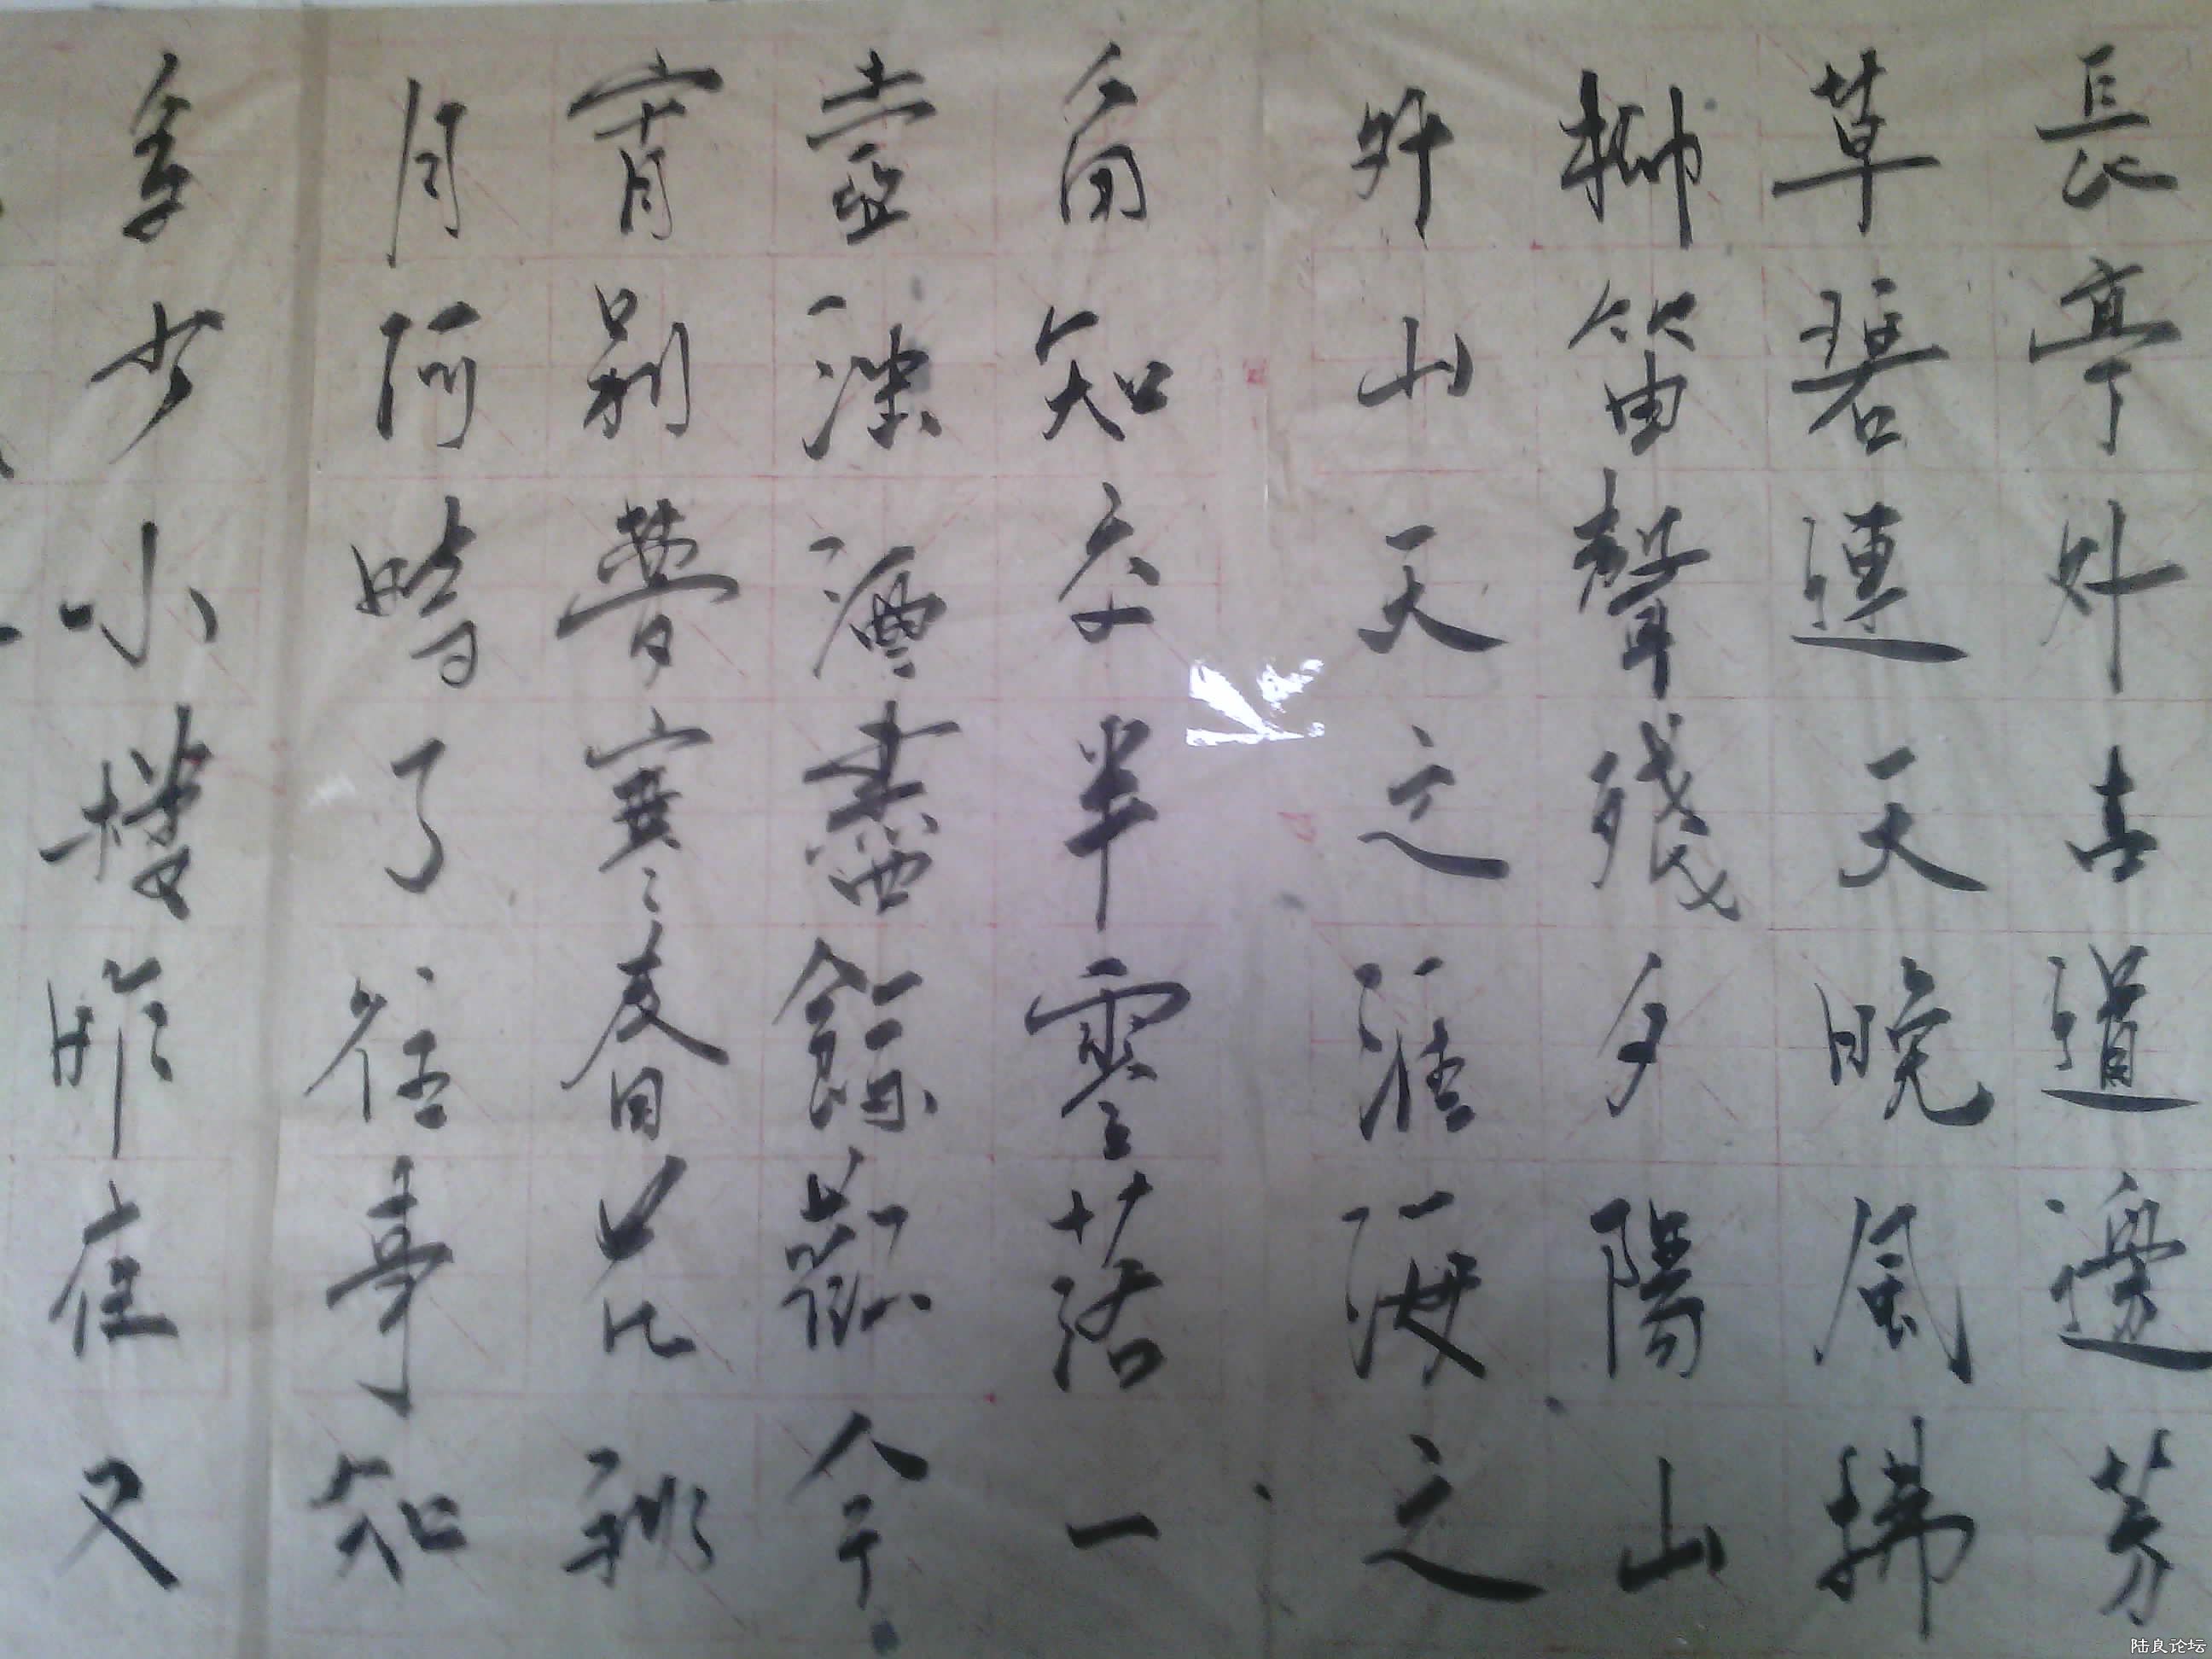 長亭外古道邊芳
草碧連天晚風拂
柳笛聲殘夕陽山
外山天之涯海之
角知交半零落一
壺濁酒盡餘歡今
宵別夢寒春花秋
月何時了往事知
多少小樓昨夜又
陆良论坛